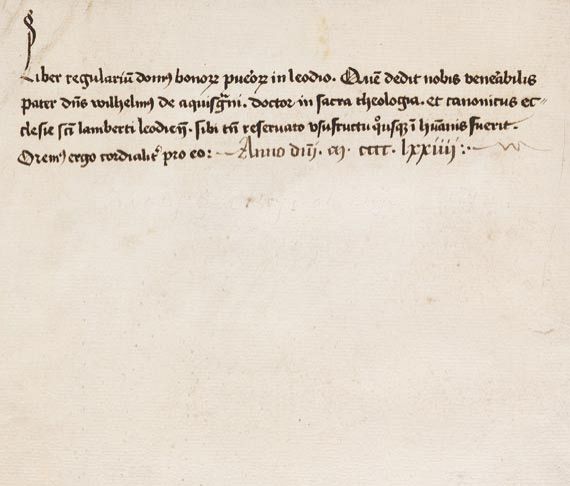 Liber regulariū domꝰ bonoꝝ pueoꝝ in leodio. Quē dedit nobis veneābilis
pater dn̄s wilhelmꝰ de aquisgͣni. doctor in sacra theologia. et canonicus ec-
clesie scī lamberti leodien̄. sibi tn̄ reseruato vsufructu qͦusqꝫ ī hūanis fuerit.
Oremꝰ ergo cordialitͬ pro eo: Anno dn̄i. m. cccc. lxxiiii:.